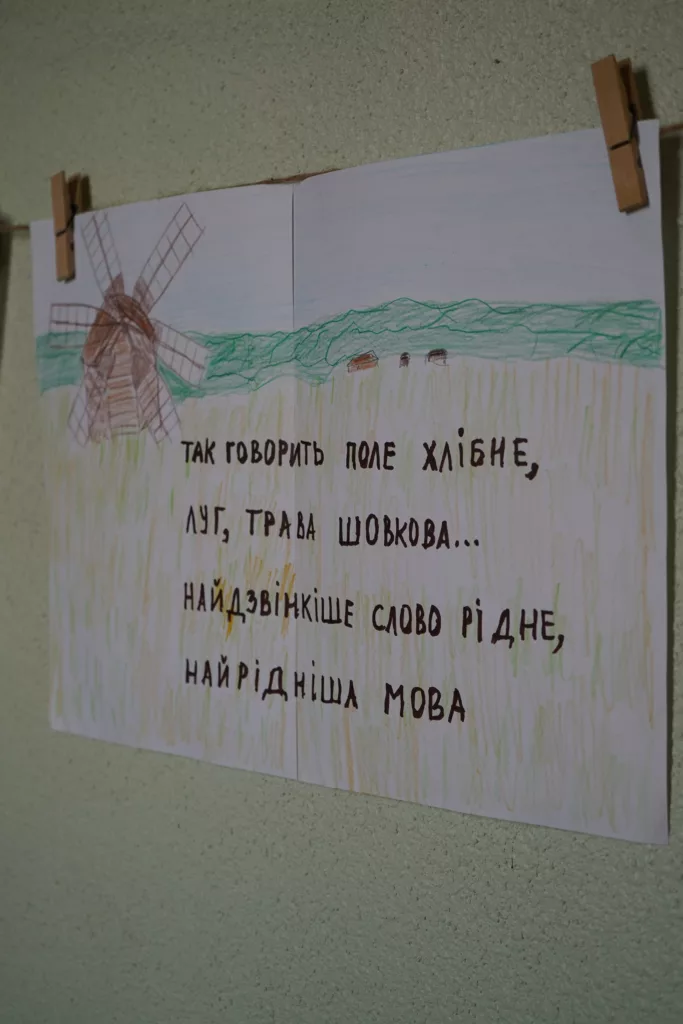 ТАК ГОВОРИТЬ ПОЛЕ ХЛІБНЕ,
ЛУГ, ТРАВА ШОВКОВА...
НАЙДЗВІНКІШЕ СЛОВО РІДНЕ,
НАЙРІДНІША МОВА